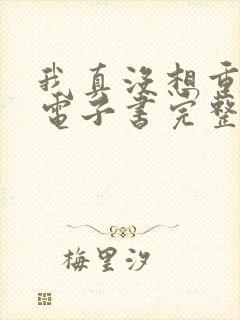 我真沒想重
電子書完整
梅里汐